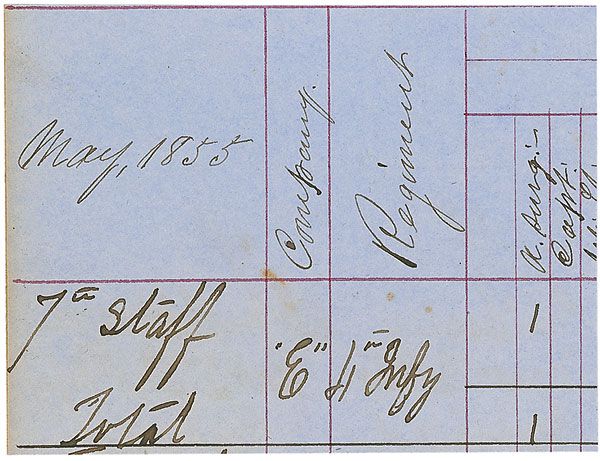 May, 1855
Company.
Regiment
A. Surg:-
Capt:
7th Staff
"E"
4th Infy
1
Total
1